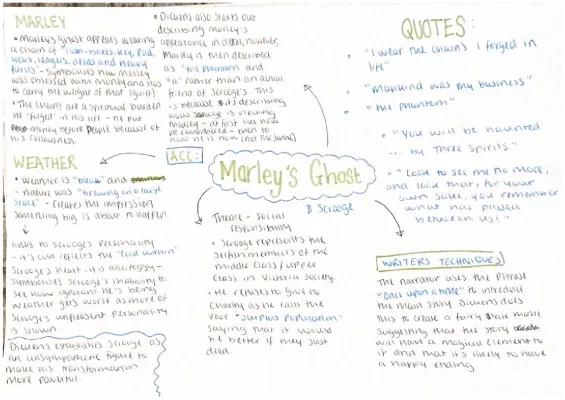 MARLEY
• Marley's Ghost appears wearing
a chain of "cash-boxes, key, pad
locks, leagers, deeds and heavy
purses" - symbolises how Marley
was obsessed with money and has
to carry the weight of that (guilt)
• The chains are a spiritual burden
he "forged" in his life - he put
money before people because of
his callousness.
• Dickens also starts out
describing Marley's
appearance in detail, however,
Marley is then described
as "the phantom" and
"it" rather than an actual
friend of Scrooge's. This
is because it's describing
how Scrooge is viewing
Marley - at first like how
he remembered - then to
how he is now (not the same)
QUOTES:
• "I wear the chains I forged in
life"
• "Mankind was my business"
• "the phantom"
• "You will be haunted
... by three spirits"
• "Look to see me no more,
and look that, for your
own sake, you remember
what has passed
between us!"
ACC:
Marley's Ghost
& Scrooge
WEATHER
• Weather is "bleak" and
- nature was "brewing on a large
scale" - creates the impression
something big is about to happen
links to Scrooge's personality
- it's cold reflects the "cold within"
Scrooge's heart - it is an allegory -
symbolises Scrooge's inability to
see how ignorant he's being
weather gets worse as more of
Scrooge's unpleasant personality
is shown.
Dickens establishes Scrooge as
an unsympathetic figure to
make his transformation
more powerful.
Theme - Social
responsibility
• Scrooge represents the
selfish members of the
middle class / upper
class in Victorian Society.
• He refuses to give to
charity as he calls the
poor "surplus population"
saying that it would
be better if they just
died.
WRITERS TECHNIQUES
The narrator uses the phrase
"once upon a time" to introduce
the main story. Dickens does
this to create a fairy tale
suggesting that the story
will have a magical element to
it and that it's likely to have
a happy ending